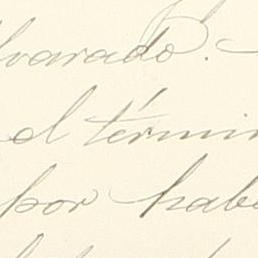 lvarado.
el términ
por habe